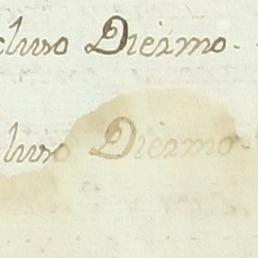 cluso Diezmo.
luso Diezmo.